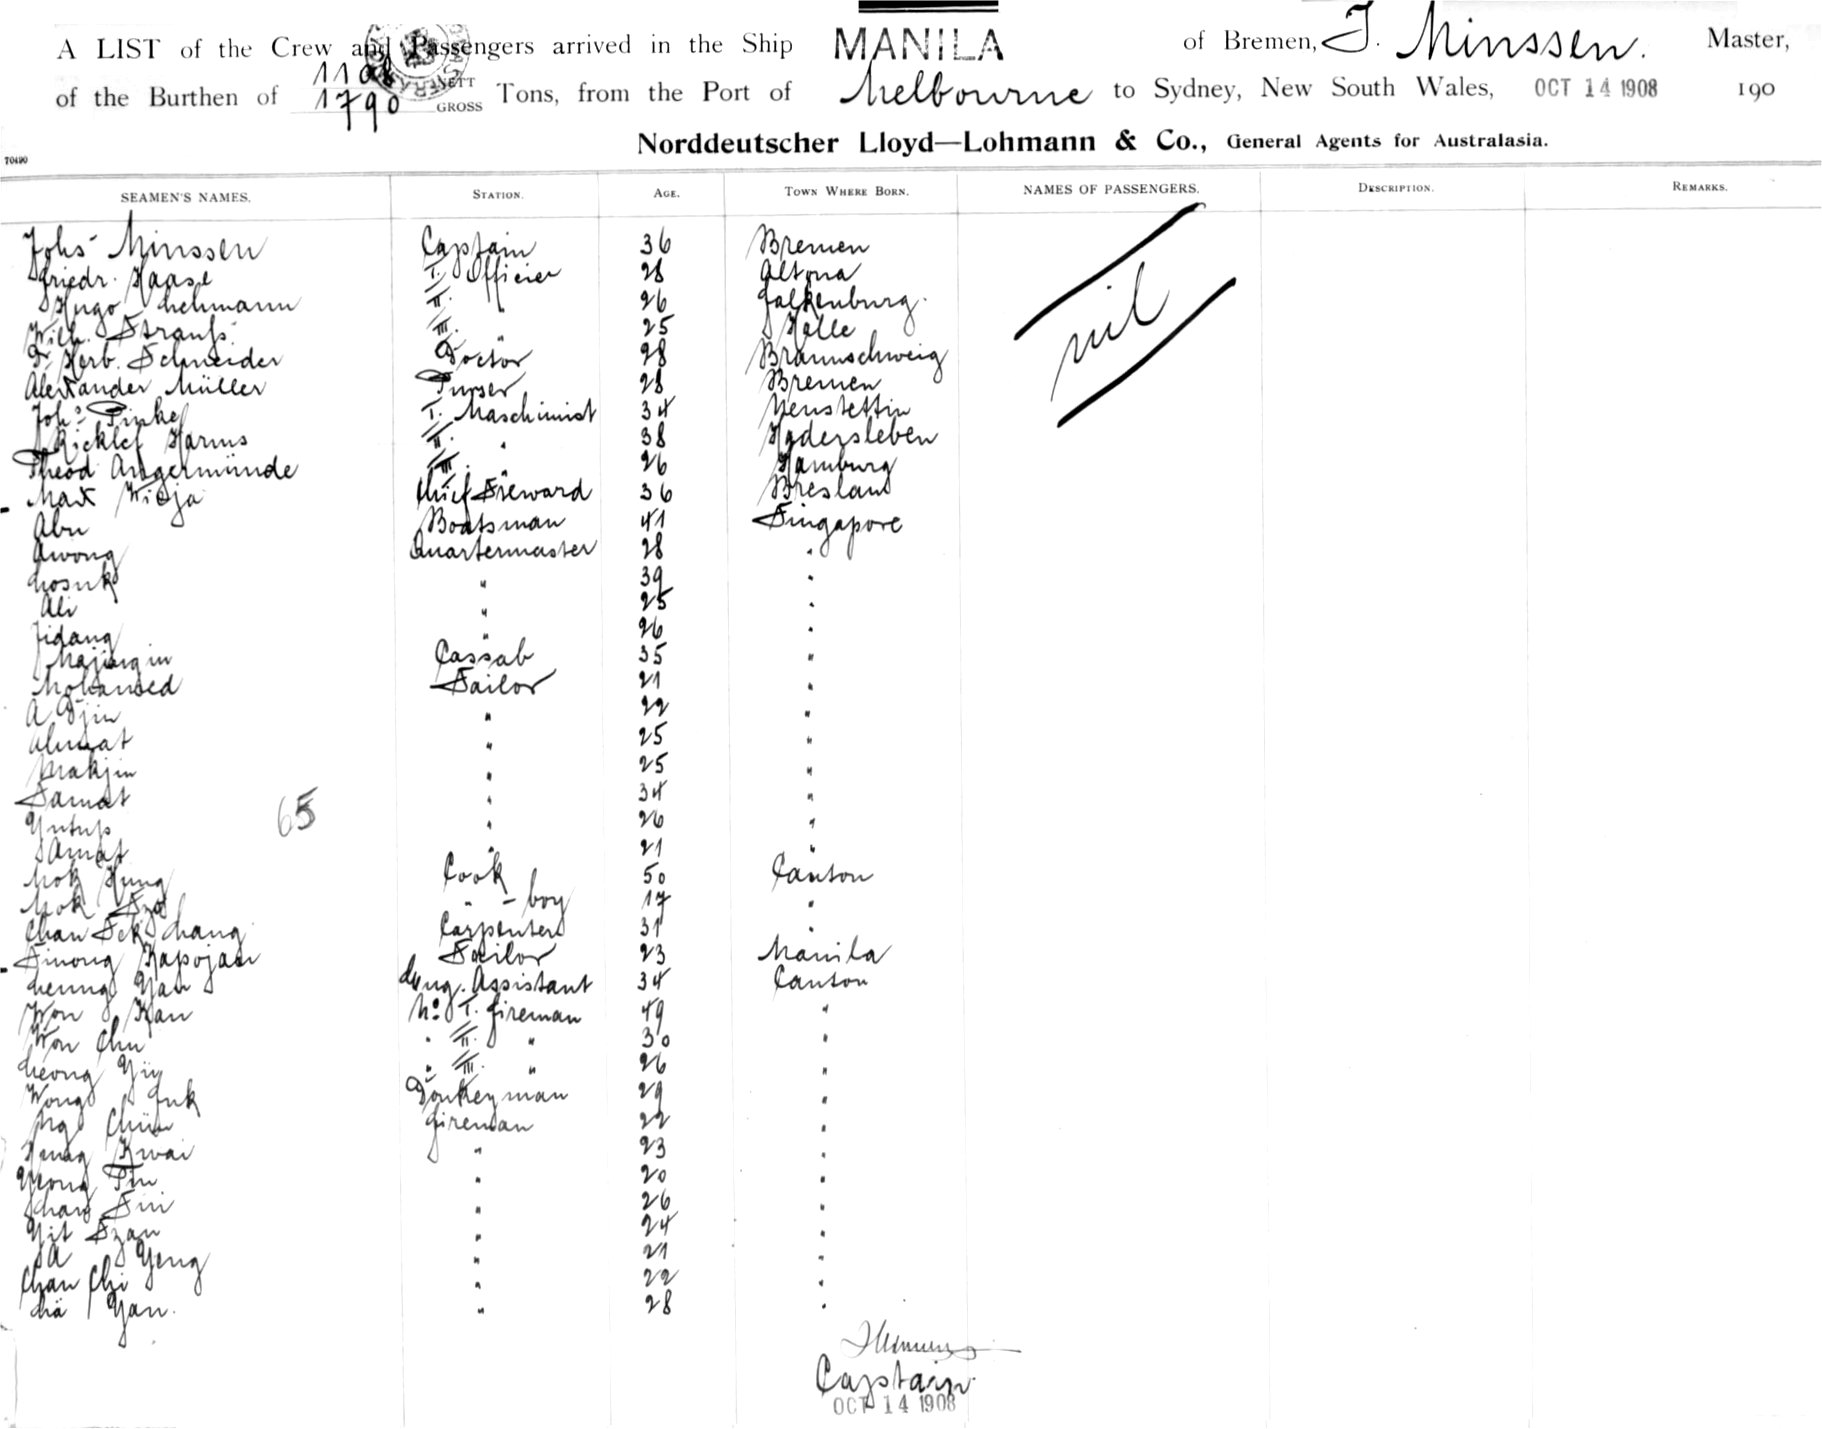 A LIST of the Crew and Passengers arrived in the Ship MANILA of Bremen, J. Minssen. Master,
of the Burthen of 1108 NETT 1790 GROSS Tons, from the Port of Melbourne to Sydney, New South Wales, OCT 14 1908 190
Norddeutscher Lloyd—Lohmann & Co., General Agents for Australasia.
70490
SEAMEN'S NAMES. STATION. AGE. TOWN WHERE BORN. NAMES OF PASSENGERS. DESCRIPTION. REMARKS.
Johs Minssen Captain 36 Bremen
Friedr. Haase I. Officier 28 Altona
Hugo Lehmann II. " 26 Falkenburg.
Wilh. Strauß. III. " 25 Halle
Dr Herb. Schneider Doctor 28 Braunschweig
Alexander Müller Purser 28 Bremen
Johs Pinkel I. Maschinist 34 Neustettin
Ricklef Harms II. " 38 Hadersleben
Theod Angermünde III. " 26 Hamburg
Max Wieja Chief Steward 36 Breslau
Abu Boatsman 41 Singapore
Awong Quartermaster 28 "
Losuk " 39 "
Ali " 25 "
Jidang " 26 "
Majingin Cassab 35 "
Mohamed Sailor 21 "
A Djin " 22 "
Ahmat " 25 "
Makjin " 25 "
Samat " 34 "
65
Yutup " 26 "
Amat " 21 "
Mok Hung Cook 50 Canton
Mok " - boy 17 "
Chan Sek Chang Carpenter 31 "
Sinong Kapojan Sailor 23 Manila
Leung Yau Eng. Assistant 34 Canton
Won Kan No I. Fireman 49 "
Won Chu " II. " 30 "
Leong Yiy " III. " 26 "
Wong Fuk Donkeyman 29 "
Ng Chün Fireman 22 "
Hung Kwai " 23 "
Yeong Pin " 20 "
Chan Sui " 26 "
Yit Szan " 24 "
A Yeng " 21 "
Chan Chi " 22 "
Lia Yan. " 28 "
nil
JMinssen
Captain.
OCT 14 1908